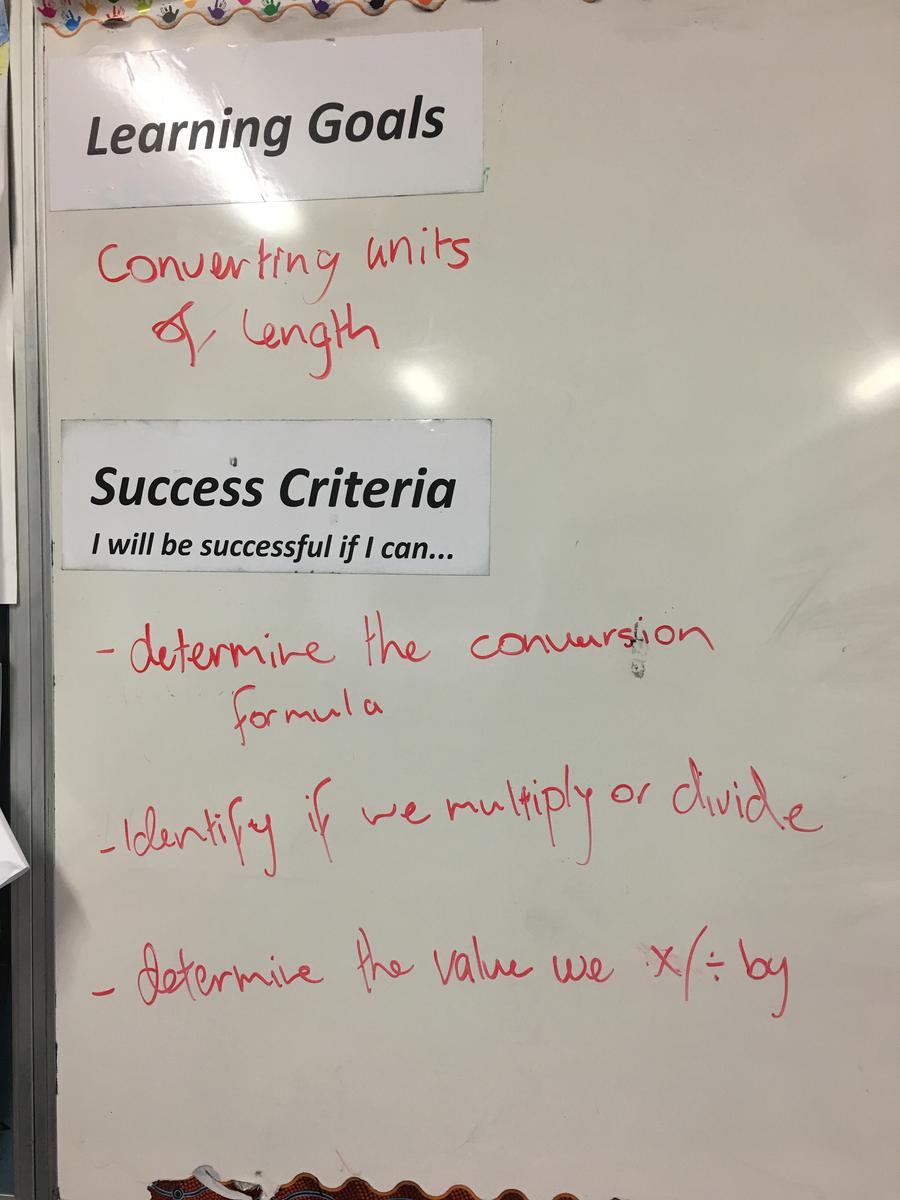 Learning Goals
Converting units
of length
Success Criteria
I will be successful if I can...
- determine the conversion
formula
- Identify if we multiply or divide
- determine the value we x/÷ by